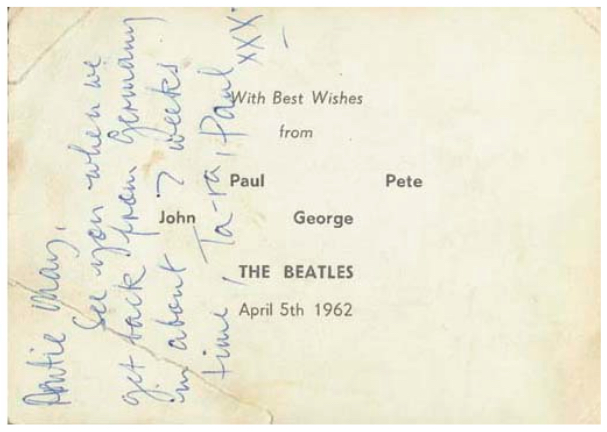 With Best Wishes
from
Paul Pete
John George
THE BEATLES
April 5th 1962
Auntie May,
See you when we
get back from Germany
in about 7 weeks
time, Ta-ra, Paul
xxx